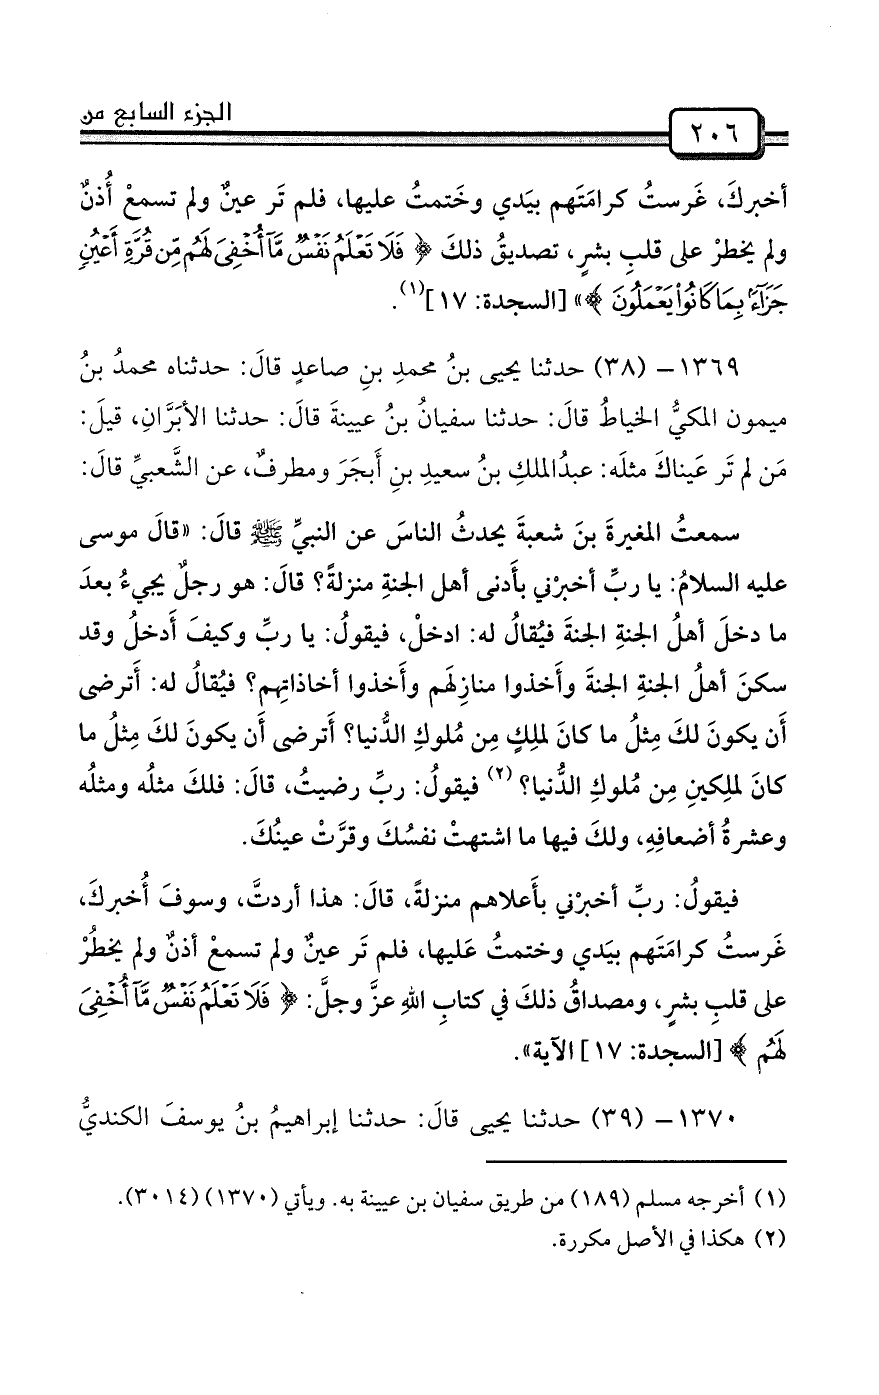 الجزء السابع من
٢٠٦
أخبركَ، غَرستُ كرامَتَهم بيَدي وخَتمتُ عليها، فلم تَر عينٌ ولم تسمعْ أُذنٌ
ولم يخطرْ على قلبِ بشرٍ، تصديقُ ذلكَ ﴿ فَلَا تَعْلَمُ نَفْسٌ مَّآ أُخْفِىَ لَهُم مِّن قُرَّةِ أَعْيُنٍ
جَزَآءًۢ بِمَا كَانُوا۟ يَعْمَلُونَ ﴾» [السجدة: ١٧](١).
١٣٦٩ – (٣٨) حدثنا يحيى بنُ محمدِ بنِ صاعدٍ قالَ: حدثناه محمدُ بنُ
ميمون المكيُّ الخياطُ قالَ: حدثنا سفيانُ بنُ عيينةَ قالَ: حدثنا الأبَرَّانِ، قيلَ:
مَن لم تَر عَيناكَ مثلَه: عبدُالملكِ بنُ سعيدِ بنِ أَبجَرَ ومطرفٌ، عن الشَّعبيِّ قالَ:
سمعتُ المغيرةَ بنَ شعبةَ يحدثُ الناسَ عن النبيِّ ﷺ قالَ: «قالَ موسى
عليه السلامُ: يا ربِّ أخبرْني بأَدنى أهل الجنةِ منزلةً؟ قالَ: هو رجلٌ يجيءُ بعدَ
ما دخلَ أهلُ الجنةِ الجنةَ فيُقالُ له: ادخلْ، فيقولُ: يا ربِّ وكيفَ أَدخلُ وقد
سكنَ أهلُ الجنةِ الجنةَ وأَخذوا منازِلَهم وأَخذوا أخاذاتِهم؟ فيُقالُ له: أَترضى
أَن يكونَ لكَ مِثلُ ما كانَ لملِكٍ مِن مُلوكِ الدُّنيا؟ أَترضى أَن يكونَ لكَ مِثلُ ما
كانَ لملِكينِ مِن مُلوكِ الدُّنيا؟ (٢) فيقولُ: ربِّ رضيتُ، قالَ: فلكَ مثلُه ومثلُه
وعشرةُ أضعافِهِ، ولكَ فيها ما اشتهتْ نفسُكَ وقرَّتْ عينُكَ.
فيقولُ: ربِّ أخبرْني بأَعلاهم منزلةً، قالَ: هذا أردتَّ، وسوفَ أُخبركَ،
غَرستُ كرامَتَهم بيَدي وختمتُ عَليها، فلم تَر عينٌ ولم تسمعْ أذنٌ ولم يخطُرْ
على قلبِ بشرٍ، ومصداقُ ذلكَ في كتابِ اللهِ عزَّ وجلَّ: ﴿ فَلَا تَعْلَمُ نَفْسٌ مَّآ أُخْفِىَ
لَهُم ﴾ [السجدة: ١٧] الآية».
١٣٧٠ – (٣٩) حدثنا يحيى قالَ: حدثنا إبراهيمُ بنُ يوسفَ الكنديُّ
(١) أخرجه مسلم (١٨٩) من طريق سفيان بن عيينة به. ويأتي (١٣٧٠) (٣٠١٤).
(٢) هكذا في الأصل مكررة.